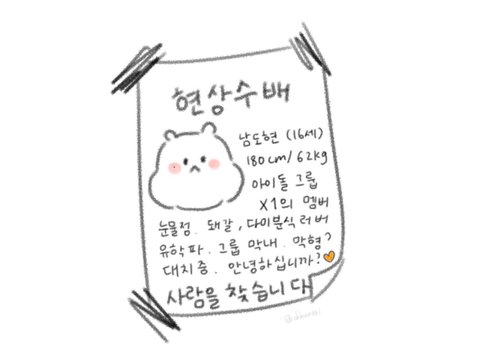 현상수배
남도현 (16세)
180cm/62kg
아이돌 그룹
X1의 멤버
눈물점. 돼갈, 다이분식러버
유학파. 그룹 막내. 막형?
대치중. 안녕하십니까?🧡
사람을 찾습니다